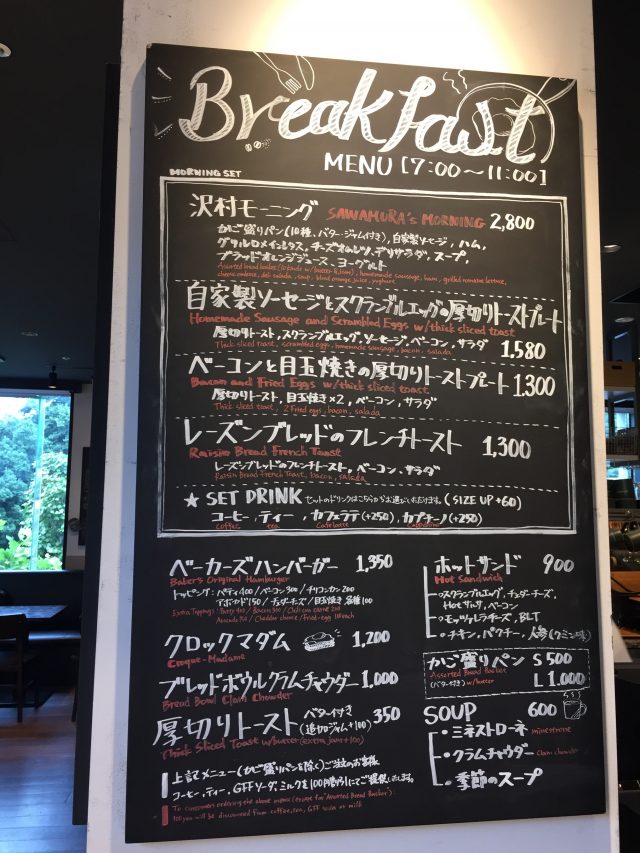 Breakfast
MENU [7:00～11:00]
MORNING SET
沢村モーニング SAWAMURA's MORNING 2,800
かご盛りパン(10種、バター・ジャム付き)、自家製ソーセージ、ハム、
グリルロメインレタス、チーズオムレツ、デリサラダ、スープ、
ブラッドオレンジジュース、ヨーグルト
自家製ソーセージとスクランブルエッグの厚切りトーストプレート
Homemade Sausage and Scrambled Eggs w/thick sliced toast
厚切りトースト、スクランブルエッグ、ソーセージ、ベーコン、サラダ 1,580
Thick sliced toast, scrambled eggs, homemade sausage, bacon, salada
ベーコンと目玉焼きの厚切りトーストプレート 1,300
Bacon and Fried Eggs w/thick sliced toast
厚切りトースト、目玉焼き×2、ベーコン、サラダ
Thick sliced toast, 2 fried eggs, bacon, salada
レーズンブレッドのフレンチトースト 1,300
Raisin Bread French Toast
レーズンブレッドのフレンチトースト、ベーコン、サラダ
Raisin Bread French Toast, bacon, salada
★ SET DRINK セットのドリンクはこちらからお選びいただけます。(SIZE UP +60)
コーヒー、ティー、カフェラテ(+250)、カプチーノ(+250)
coffee tea Cafe latte Cappuccino
ベーカーズハンバーガー 1,350
Baker's Original Hamburger
トッピング：パティ400/ベーコン300/チリコンカン200
アボカド150/チェダーチーズ/目玉焼き 各種100
クロックマダム 1,200
Croque-Madame
ブレッドボウルクラムチャウダー 1,000
Bread Bowl Clam Chowder
厚切りトースト バター付き (追加ジャム+100) 350
Thick Sliced Toast w/butter (extra jam+100)
上記メニュー(かご盛りパンを除く)ご注文のお客様
コーヒー、ティー、GFFソーダ、ミルクを100円割引にてご提供いたします。
To customers ordering the above menu (except for "Assorted Bread Basket"):
100yen will be discounted from coffee, tea, GFF soda or milk
ホットサンド 900
Hot Sandwich
・スクランブルエッグ、チェダーチーズ、
ベーコン
・モッツァレラチーズ、BLT
・チキン、パクチー、人参(クミン味)
かご盛りパン S 500
Assorted Bread Basket
(バター付き) w/butter L 1,000
SOUP 600
・ミネストローネ minestrone
・クラムチャウダー Clam chowder
・季節のスープ